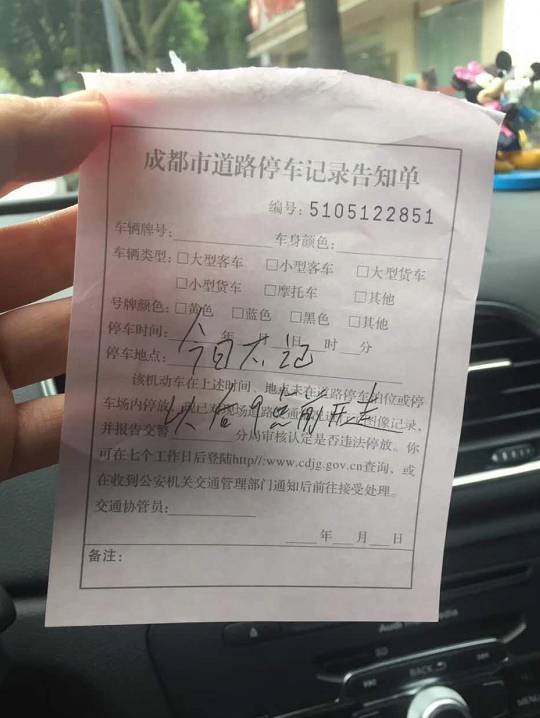 成都市道路停车记录告知单
编号：5105122851
车辆牌号： 车身颜色：
车辆类型：□大型客车 □小型客车 □大型货车
□小型货车 □摩托车 □其他
号牌颜色：□黄色 □蓝色 □黑色 □其他
停车时间： 年 月 日 时 分
停车地点：
今日不记
该机动车在上述时间、地点未在道路停车泊位或停
车场内停放，现已对现场道路交通 图像记录，
并报告交警 分局审核认定是否违法停放。你
可在七个工作日后登陆http//:www.cdjg.gov.cn查询，或
在收到公安机关交通管理部门通知后前往接受处理。
交通协管员：
年 月 日
备注：
BACK
SD
MENU